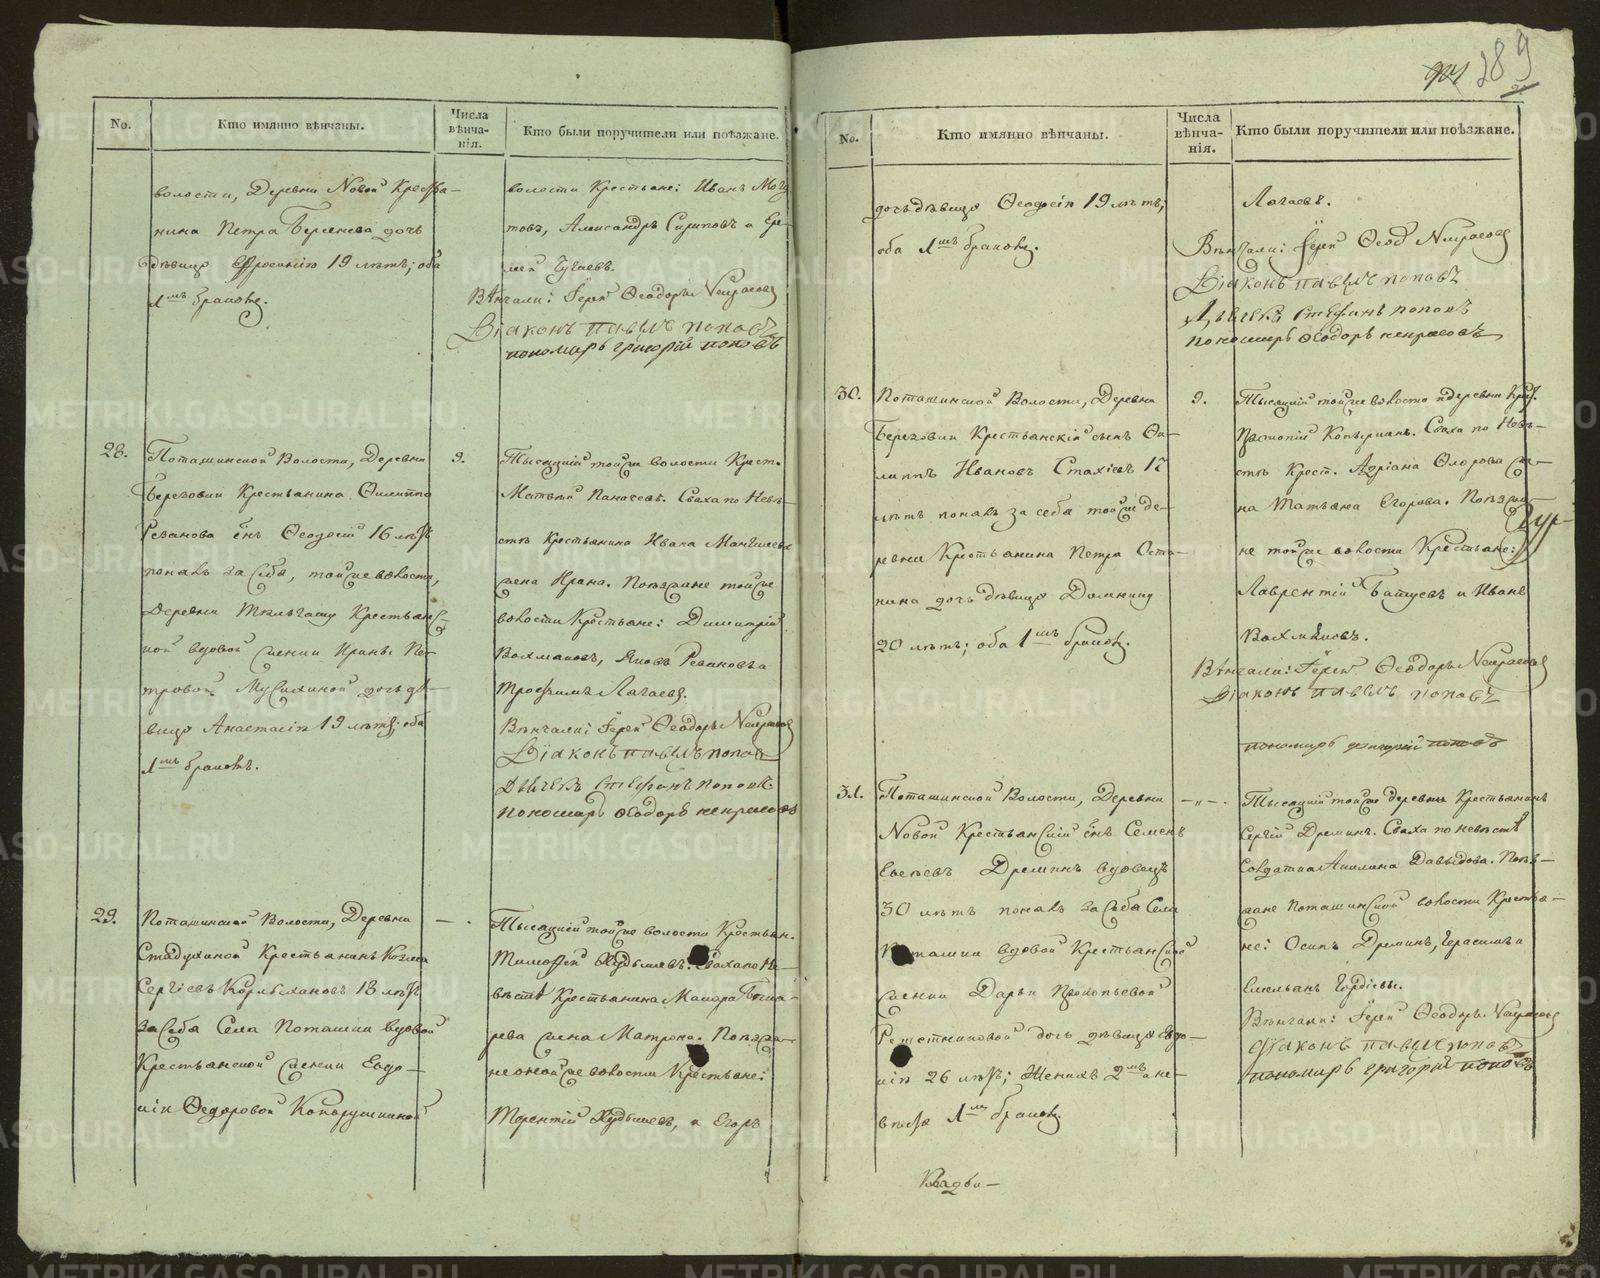 289
No.
Кто имянно вѣнчаны.
Числа вѣнча-нія.
Кто были поручители или поѣзжане.
волости, Деревни Новой Крестья-
нина Петра дочь
дѣвицу 19 лѣтъ; оба
1мъ бракомъ.
волости Крестьяне: Иванъ
товъ, Александръ и Ере-
мей
Вѣнчали: Іерей Ѳеодоръ Некрасовъ
Діаконъ павелъ поповъ
пономарь григорій поповъ
28.
Поташинской Волости, Деревни
Березовки Крестьянина Филиппа
Резанова сынъ Ѳеодосій 16 лѣтъ
понялъ за себя, тойже волости,
Деревни Крестьянс-
кой вдовой женки Ирины Пе-
тровой дочь дѣ-
вицу Анастасію 19 лѣтъ; оба
1мъ бракомъ.
9.
Тысяцкій тойже волости Крест.
Матвѣй Сваха по Невѣ-
стѣ Крестьянина Ивана
жена Ирина. Поѣзжане тойже
волости Крестьяне: Димитрій
Вахмяковъ, Яковъ Резановъ и
Трофимъ Лагаевъ.
Вѣнчали: Іерей Ѳеодоръ Некрасовъ
Діаконъ павелъ поповъ
Дьячекъ Стефанъ поповъ
пономарь Ѳеодоръ некрасовъ
29.
Поташинской Волости, Деревни
Стадухиной Крестьянинъ Козма
Сергіевъ 18 лѣтъ
за себя Села Поташки вдовой
Крестьянской женки Евдо-
кіи Федоровой
— .
Тысяцкій тойже волости Крестьян.
Тимофей Сваха по Не-
вѣстѣ Крестьянина Макара
рева жена Матрона. Поѣзжа-
не онойже волости Крестьяне:
Терентій и Егоръ
No.
Кто имянно вѣнчаны.
Числа вѣнча-нія.
Кто были поручители или поѣзжане.
дочь дѣвицу Ѳеодосію 19 лѣтъ;
оба 1мъ бракомъ.
Лагаевъ.
Вѣнчали: Іерей Ѳеод Некрасовъ
Діаконъ павелъ поповъ
Дьячекъ Стефанъ поповъ
пономарь Ѳеодоръ некрасовъ
30.
Поташинской Волости, Деревни
Березовки Крестьянскій сынъ Фи-
липпъ Ивановъ Стахіевъ 17
лѣтъ понялъ за себя тойже де-
ревни Крестьянина Петра Оста-
нина дочь дѣвицу Домнику
20 лѣтъ; оба 1мъ бракомъ.
9.
Тысяцкій тойже волости и деревни Крес.
Сваха по Невѣ-
стѣ Крест. Адріана же-
на Татьяна Егорова. Поѣзжа-
не тойже волости Крестьяне:
Лаврентій и Иванъ
Вахмяковъ.
Вѣнчали: Іерей Ѳеодоръ Некрасовъ
Діаконъ павелъ поповъ
пономарь григорій поповъ
31.
Поташинской Волости, Деревни
Новой Крестьянскій сынъ Семенъ
Дреминъ вдовецъ
30 лѣтъ понялъ за себя Села
Поташки вдовой Крестьянской
женки Дарьи Прокопьевой
Решетниковой дочь дѣвицу Евдо-
кію 26 лѣтъ; Женихъ 2мъ а не-
вѣста 1мъ бракомъ.
— „ — .
Тысяцкій тойже деревни Крестьянинъ
Сергій Дреминъ. Сваха по невѣстѣ
Солдатка Акилина Давыдова. Поѣз-
жане Поташинской волости Крестья-
не: Осипъ Дреминъ, Герасимъ и
Емельянъ Гордіевы.
Вѣнчали: Іерей Ѳеодоръ Некрасовъ
Діаконъ павелъ поповъ
пономарь григорій поповъ
METRIKI.GASO-URAL.RU